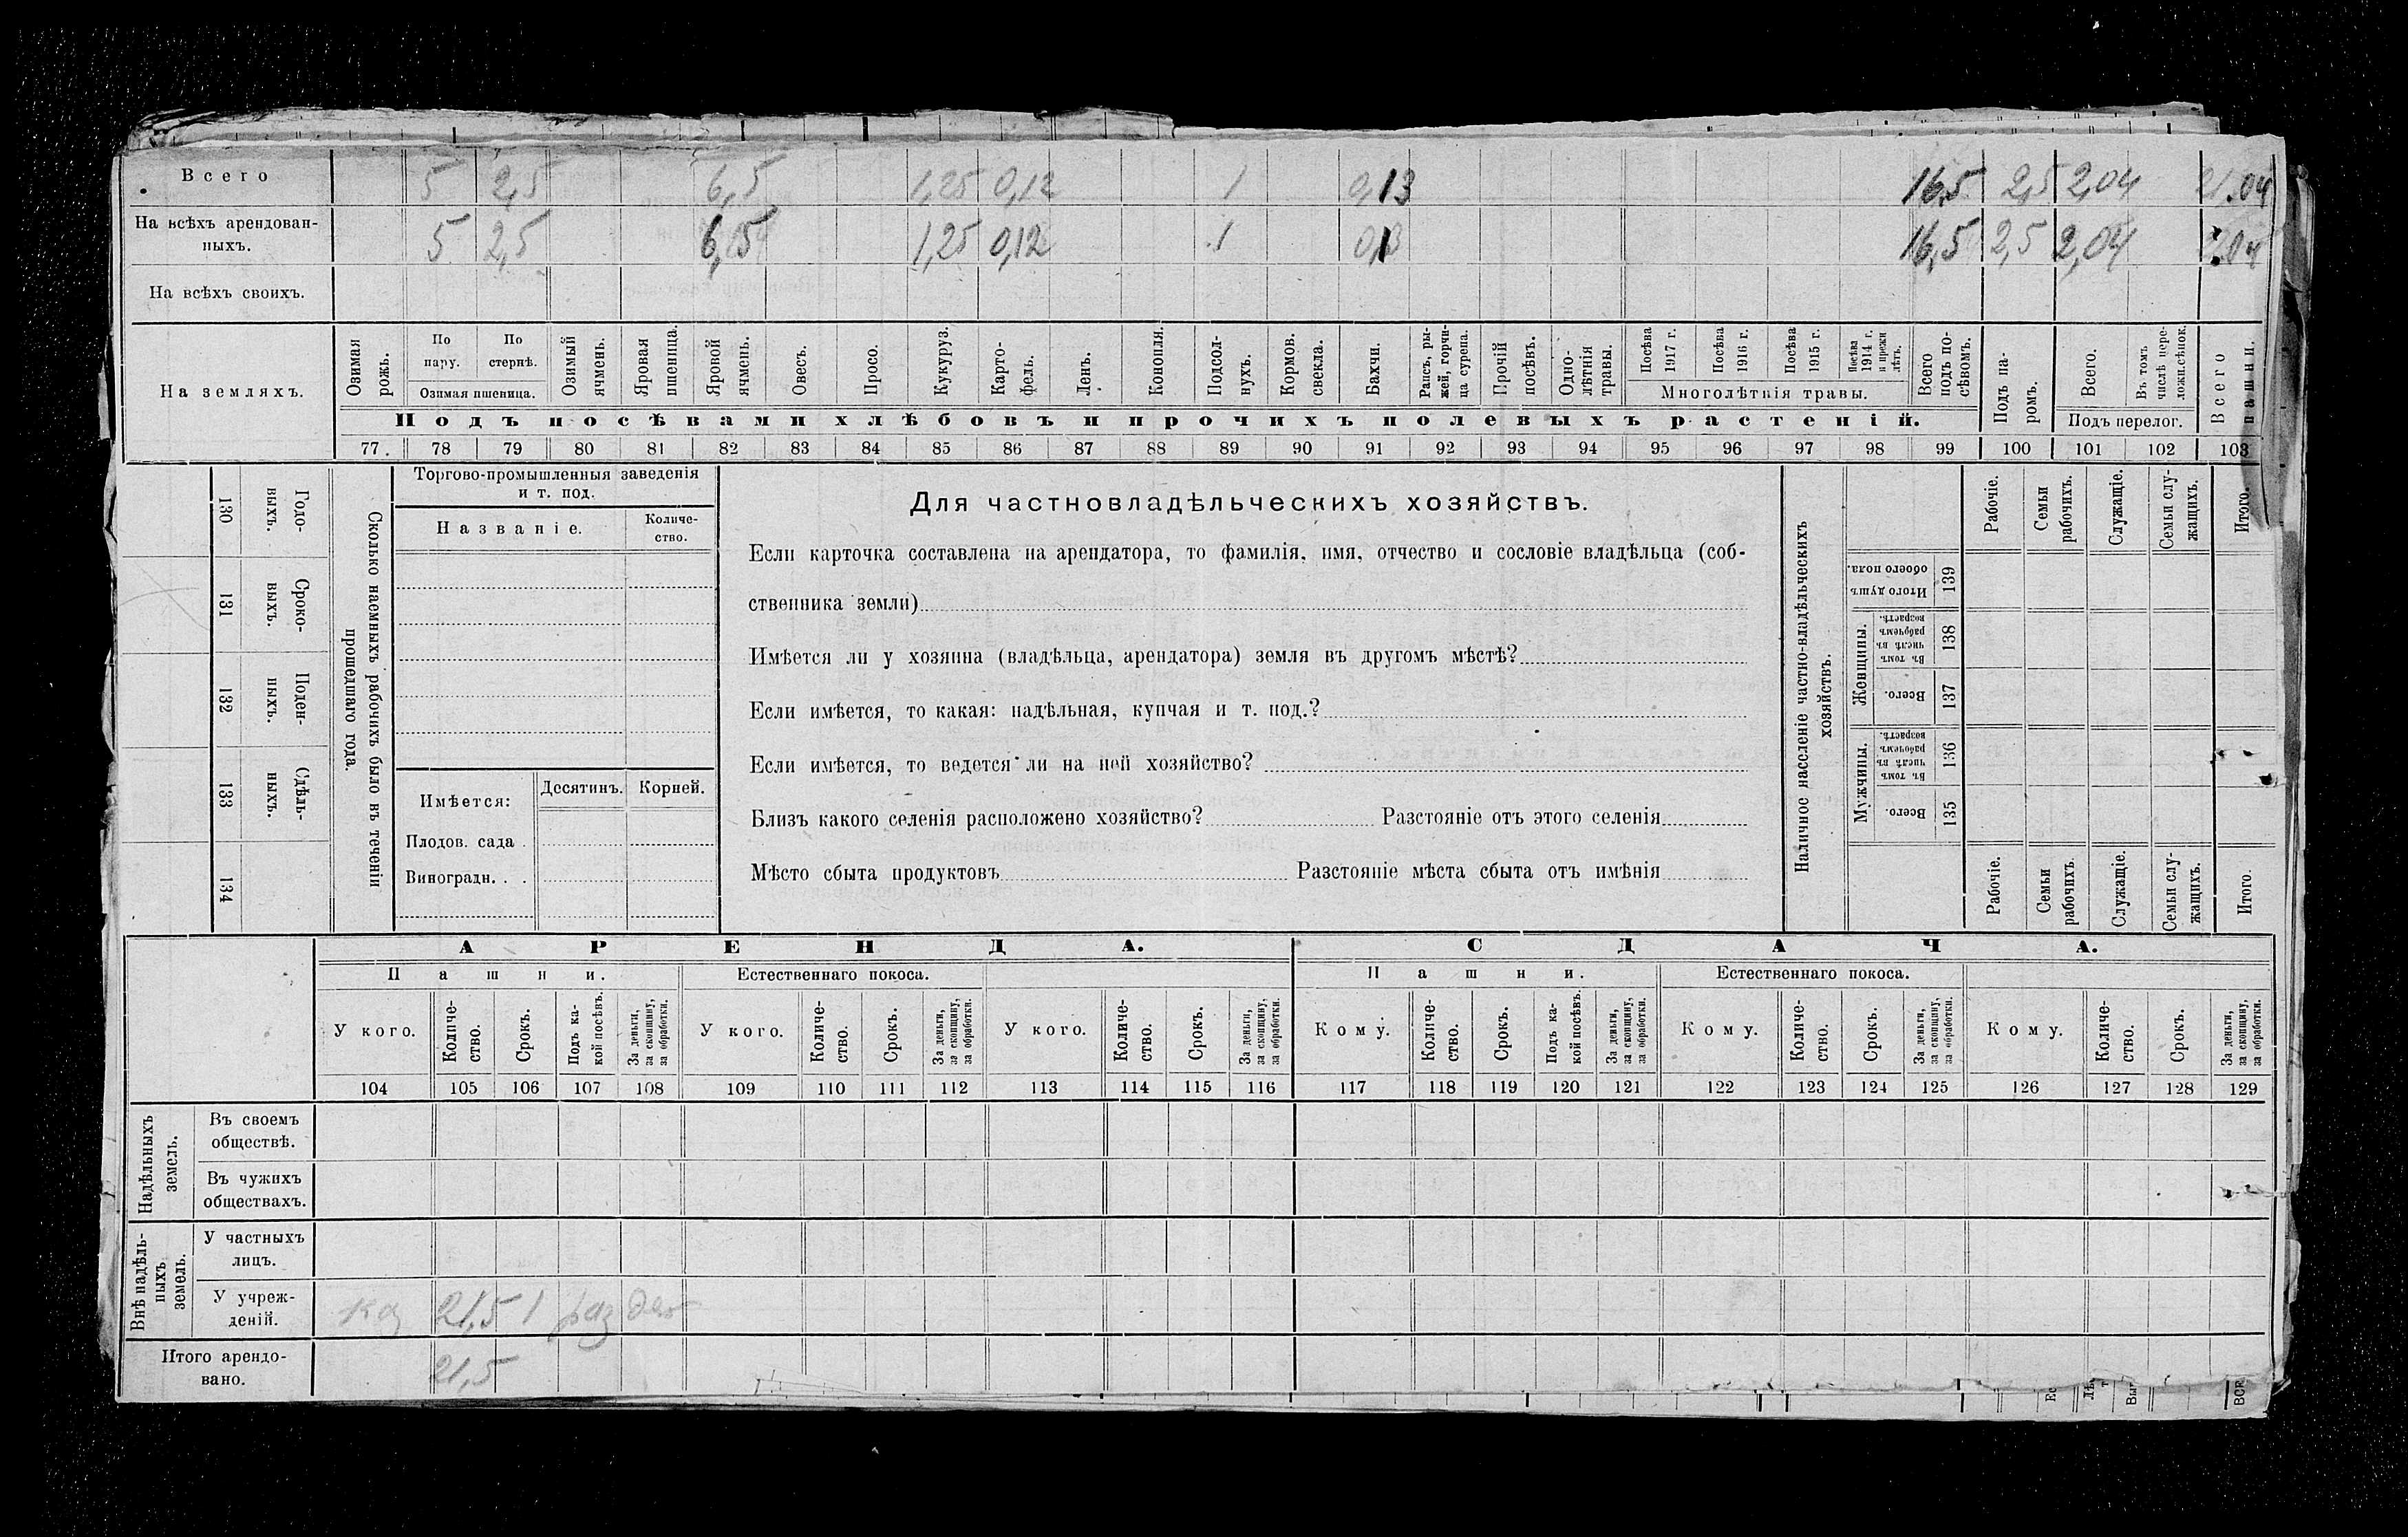 Всего 5 2,5 6,5 1,25 0,12 1 0,13 16,5 2,5 2,04 21.04
На всѣхъ арендован-
ныхъ. 5 2,5 6,5 1,25 0,12 1 16,5 2,5 2,04
На всѣхъ своихъ.
На земляхъ.
Озимая рожь.
По пару.
По стернѣ.
Озимая пшеница.
Озимый ячмень.
Яровая пшеница.
Яровой ячмень.
Овесъ.
Просо.
Кукуруз.
Карто-
фель.
Ленъ.
Конопля.
Подсол-
нухъ.
Кормов. свекла.
Бахчи.
Рапсъ, ры-
жей, горчи-
ца сурепа.
Прочій посѣвъ.
Одно-
лѣтнія травы.
Посѣва 1917 г.
Посѣва 1916 г.
Посѣва 1915 г.
Посѣва 1914 г. и прежн лѣтъ.
Многолѣтнія травы.
Всего подъ по-
сѣвомъ.
Подъ посѣвами хлѣбовъ и прочихъ полевыхъ растеній.
Подъ па-
ромъ.
Всего.
Въ томъ числѣ пере-
ложн.сѣнок.
Подъ перелог.
Всего пашни.
77. 78 79 80 81 82 83 84 85 86 87 88 89 90 91 92 93 94 95 96 97 98 99 100 101 102 103
130 Годо-
выхъ.
131 Сроко-
выхъ.
132 Поден-
ныхъ.
133 Сдѣль-
ныхъ.
134
Сколько наемныхъ рабочихъ было въ теченіи
прошедшаго года.
Торгово-промышленныя заведенія
и т. под.
Названіе.
Количе-
ство.
Имѣется: Десятинъ. Корней.
Плодов. сада .
Виноградн. . .
Для частновладѣльческихъ хозяйствъ.
Если карточка составлена на арендатора, то фамилія, имя, отчество и сословіе владѣльца (соб-
ственника земли)
Имѣется ли у хозяина (владѣльца, арендатора) земля въ другомъ мѣстѣ?
Если имѣется, то какая: надѣльная, купчая и т. под.?
Если имѣется, то ведется ли на ней хозяйство?
Близъ какого селенія расположено хозяйство? Разстояніе отъ этого селенія
Мѣсто сбыта продуктовъ Разстояніе мѣста сбыта отъ имѣнія
Наличное населеніе частно-владѣльческихъ
хозяйствъ.
Рабочіе.
Семьи рабочихъ.
Служащіе.
Семьи слу-
жащихъ.
Итого.
Итого душъ обоего пола. 139
Женщины.
Въ томъ числѣ въ рабочемъ возрастѣ. 138
Всего. 137
Мужчины.
Въ томъ числѣ въ рабочемъ возрастѣ. 136
Всего. 135
Рабочіе.
Семьи рабочихъ.
Служащіе.
Семьи слу-
жащихъ.
Итого.
АРЕНДА. СДАЧА.
Пашни. Естественнаго покоса. Пашни. Естественнаго покоса.
У кого.
Количе-
ство.
Срокъ.
Подъ ка-
кой посѣвъ.
За деньги,
за скопщину,
за обработки.
У кого.
Количе-
ство.
Срокъ.
За деньги,
за скопщину,
за обработки.
У кого.
Количе-
ство.
Срокъ.
За деньги,
за скопщину,
за обработки.
Кому.
Количе-
ство.
Срокъ.
Подъ ка-
кой посѣвъ.
За деньги,
за скопщину,
за обработки.
Кому.
Количе-
ство.
Срокъ.
За деньги,
за скопщину,
за обработки.
Кому.
Количе-
ство.
Срокъ.
За деньги,
за скопщину,
за обработки.
104 105 106 107 108 109 110 111 112 113 114 115 116 117 118 119 120 121 122 123 124 125 126 127 128 129
Надѣльныхъ
земель.
Въ своемъ
обществѣ.
Въ чужихъ
обществахъ.
Внѣ надѣль-
ныхъ
земель.
У частныхъ
лицъ.
У учреж-
деній. 21,5 1 раз
Итого арендо-
вано. 21,5